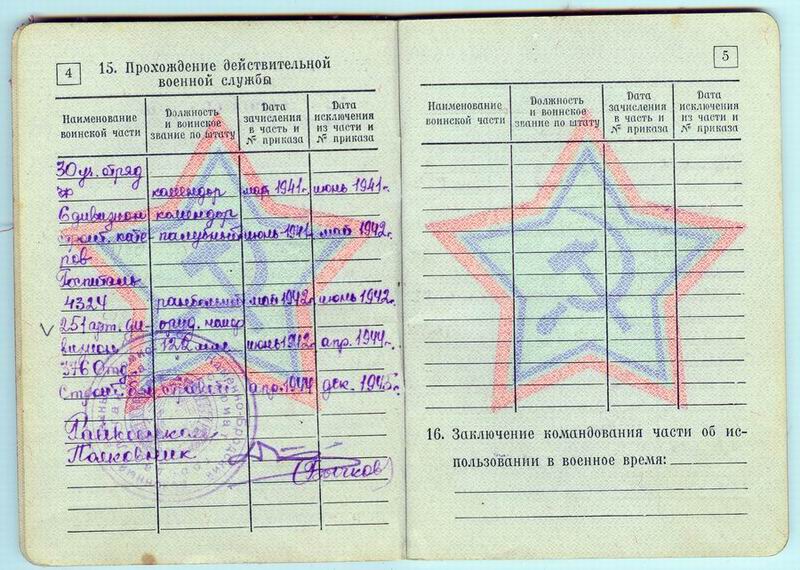 4
15. Прохождение действительной
военной службы
Наименование
воинской части
Должность
и воинское
звание по штату
Дата
зачисления
в часть и
№ приказа
Дата
исключения
из части и
№ приказа
30 уч. отряд
комендор май 1941г. июнь 1941г.
6 дивизион комендор
июнь 1941г. май 1942г.
ров
Госпиталь
4324 май 1942г. июнь 1942г.
251 арт. ди-
визион июнь 1942г. апр. 1944г.
376 Отд.
апр. 1944 дек. 1945г.
Полковник
(Бычков)
5
Наименование
воинской части
Должность
и воинское
звание по штату
Дата
зачисления
в часть и
№ приказа
Дата
исключения
из части и
№ приказа
16. Заключение командования части об ис-
пользовании в военное время: